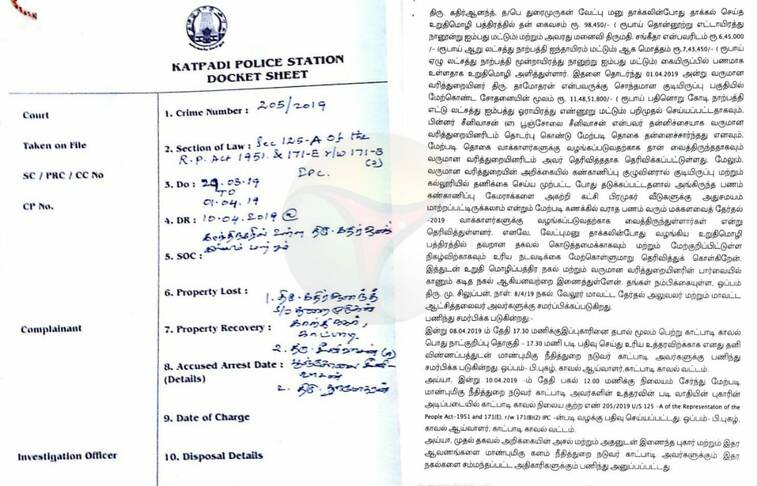 KATPADI POLICE STATION
DOCKET SHEET
Court
Taken on File
SC / PRC / CC No
CP No.
Complainant
Investigation Officer
1. Crime Number : 205/2019
2. Section of Law : Sec 125-A of the
R.P. Act 1951 & 171-E r/w 171-B
(2)
IPC.
3. Do : 29.03.19
TO
01.04.19
4. DR : 10.04.2019 @
5. SOC :
6. Property Lost :
7. Property Recovery :
8. Accused Arrest Date :
(Details)
9. Date of Charge
10. Disposal Details
திரு. கதிர்ஆனந்த், த/பெ துரைமுருகன் வேட்பு மனு தாக்கலின்போது தாக்கல் செய்த
உறுதிமொழி பத்திரத்தில் தன் கைவசம் ரூ. 98,450/- ( ரூபாய் தொன்னூற்று எட்டாயிரத்து
நானூற்று ஐம்பது மட்டும்) மற்றும் அவரது மனைவி திருமதி. சங்கீதா என்பவரிடம் ரூ 6,45,000
/- (ரூபாய் ஆறு லட்சத்து நாற்பத்தி ஐந்தாயிரம் மட்டும்) ஆக மொத்தம் ரூ.7,43,450/- ( ரூபாய்
ஏழு லட்சத்து நாற்பத்தி மூன்றாயிரத்து நானூற்று ஐம்பது மட்டும்) கையிருப்பில் பணமாக
உள்ளதாக உறுதிமொழி அளித்துள்ளார். இதனை தொடர்ந்து 01.04.2019 அன்று வருமான
வரித்துறையினர் திரு. தாமோதரன் என்பவருக்கு சொந்தமான குடியிருப்பு பகுதியில்
மேற்கொண்ட சோதனையின் மூலம் ரூ. 11,48,51,800/- ( ரூபாய் பதினொறு கோடி நாற்பத்தி
எட்டு லட்சத்து ஐம்பத்து ஓராயிரத்து எண்ணுறு மட்டும் ) பறிமுதல் செய்யப்பட்டதாகவும்,
பின்னர் சீனிவாசன் (எ) பூஞ்சோலை சீனிவாசன் என்பவர் தன்னிச்சையாக வருமான
வரித்துறையினரிடம் தொடர்பு கொண்டு மேற்படி தொகை தன்னைச்சார்ந்தது எனவும்,
மேற்படி தொகை வாக்காளர்களுக்கு வழங்குவதற்காக தான் வைத்திருந்ததாகவும்
வருமான வரித்துறையினரிடம் அவர் தெரிவித்ததாக தெரிவிக்கப்பட்டுள்ளது. மேலும்,
வருமான வரித்துறையின் அறிக்கையில் கண்காணிப்பு குழுவினரால் குடியிருப்பு மற்றும்
கல்லூரியில் தணிக்கை செய்ய முற்பட்ட போது தடுக்கப்பட்டதனால் அங்கிருந்த பணம்
கண்காணிப்பு கேமராக்களை அகற்றி கட்சி பிரமுகர் வீடுகளுக்கு அதுசமயம்
மாற்றப்பட்டிருக்கலாம் என்றும் மேற்படி கணக்கில் வராத பணம் வரும் மக்களவைத் தேர்தல்
-2019 வாக்காளர்களுக்கு வழங்கப்படுவதற்காக வைத்திருந்துள்ளார்கள் என்று
தெரிவித்துள்ளனர். எனவே, வேட்புமனு தாக்கலின்போது வழங்கிய உறுதிமொழி
பத்திரத்தில் தவறான தகவல் கொடுத்தமைக்காகவும் மற்றும் மேற்குறிப்பிட்டுள்ள
நிகழ்விற்காகவும் உரிய நடவடிக்கை மேற்கொள்ளுமாறு தெரிவித்துக் கொள்கிறேன்.
இத்துடன் உறுதி மொழிப்பத்திர நகல் மற்றும் வருமான வரித்துறையினரின் பார்வையில்
காணும் கடித நகல் ஆகியனவற்றை இணைத்துள்ளேன். தங்கள் நம்பிக்கையுள்ள, ஒப்பம்
திரு. மு. சிலுப்பன், நாள்: 8/4/19 வேலூர் மாவட்ட தேர்தல் அலுவலர் மற்றும் மாவட்ட
ஆட்சித்தலைவர் அவர்களுக்கு சமர்ப்பிக்கப்படுகிறது.
பணிந்து சமர்பிக்க படுகின்றது:-
இன்று 08.04.2019 ம் தேதி 17.30 மணிக்குஇப்புகாரினை தபால் மூலம் பெற்று காட்பாடி காவல்
பொது நாட்குறிப்பு தொகுதி - 17.30 மணி படி பதிவு செய்து உரிய உத்தரவிற்க்காக எனது தனி
விண்ணப்பத்துடன் மாண்புமிகு நீதித்துறை நடுவர் காட்பாடி அவர்களுக்கு பணிந்து
சமர்பிக்க படுகிறது. ஒப்பம்- பி.புகழ், காவல் ஆய்வாளர்,காட்பாடி காவல் வட்டம்.
அய்யா, இன்று 10.04.2019 -ம் தேதி பகல் 12.00 மணிக்கு நிலையம் சேர்ந்து மேற்படி
மாண்புமிகு நீதித்துறை நடுவர் காட்பாடி அவர்களின் உத்தரவின் படி வாதியின் புகாரின்
அடிப்படையில் காட்பாடி காவல் நிலைய குற்ற எண் 205/2019 U/S 125 -A of the Representaton of the
People Act-1951 and 171(E), r/w 171(B)(2) IPC -ன்படி வழக்கு பதிவு செய்யப்பட்டது. ஒப்பம்- பி.புகழ்,
காவல் ஆய்வாளர், காட்பாடி காவல் வட்டம்.
அய்யா, முதல் தகவல் அறிக்கையின் அசல் மற்றும் அதனுடன் இணைந்த புகார் மற்றும் இதர
ஆவணங்களை மாண்புமிகு களம் நீதித்துறை நடுவர் காட்பாடி அவர்களுக்கும் இதர
நகல்களை சம்மந்தப்பட்ட அதிகாரிகளுக்கும் பணிந்து அனுப்பப்பட்டது.